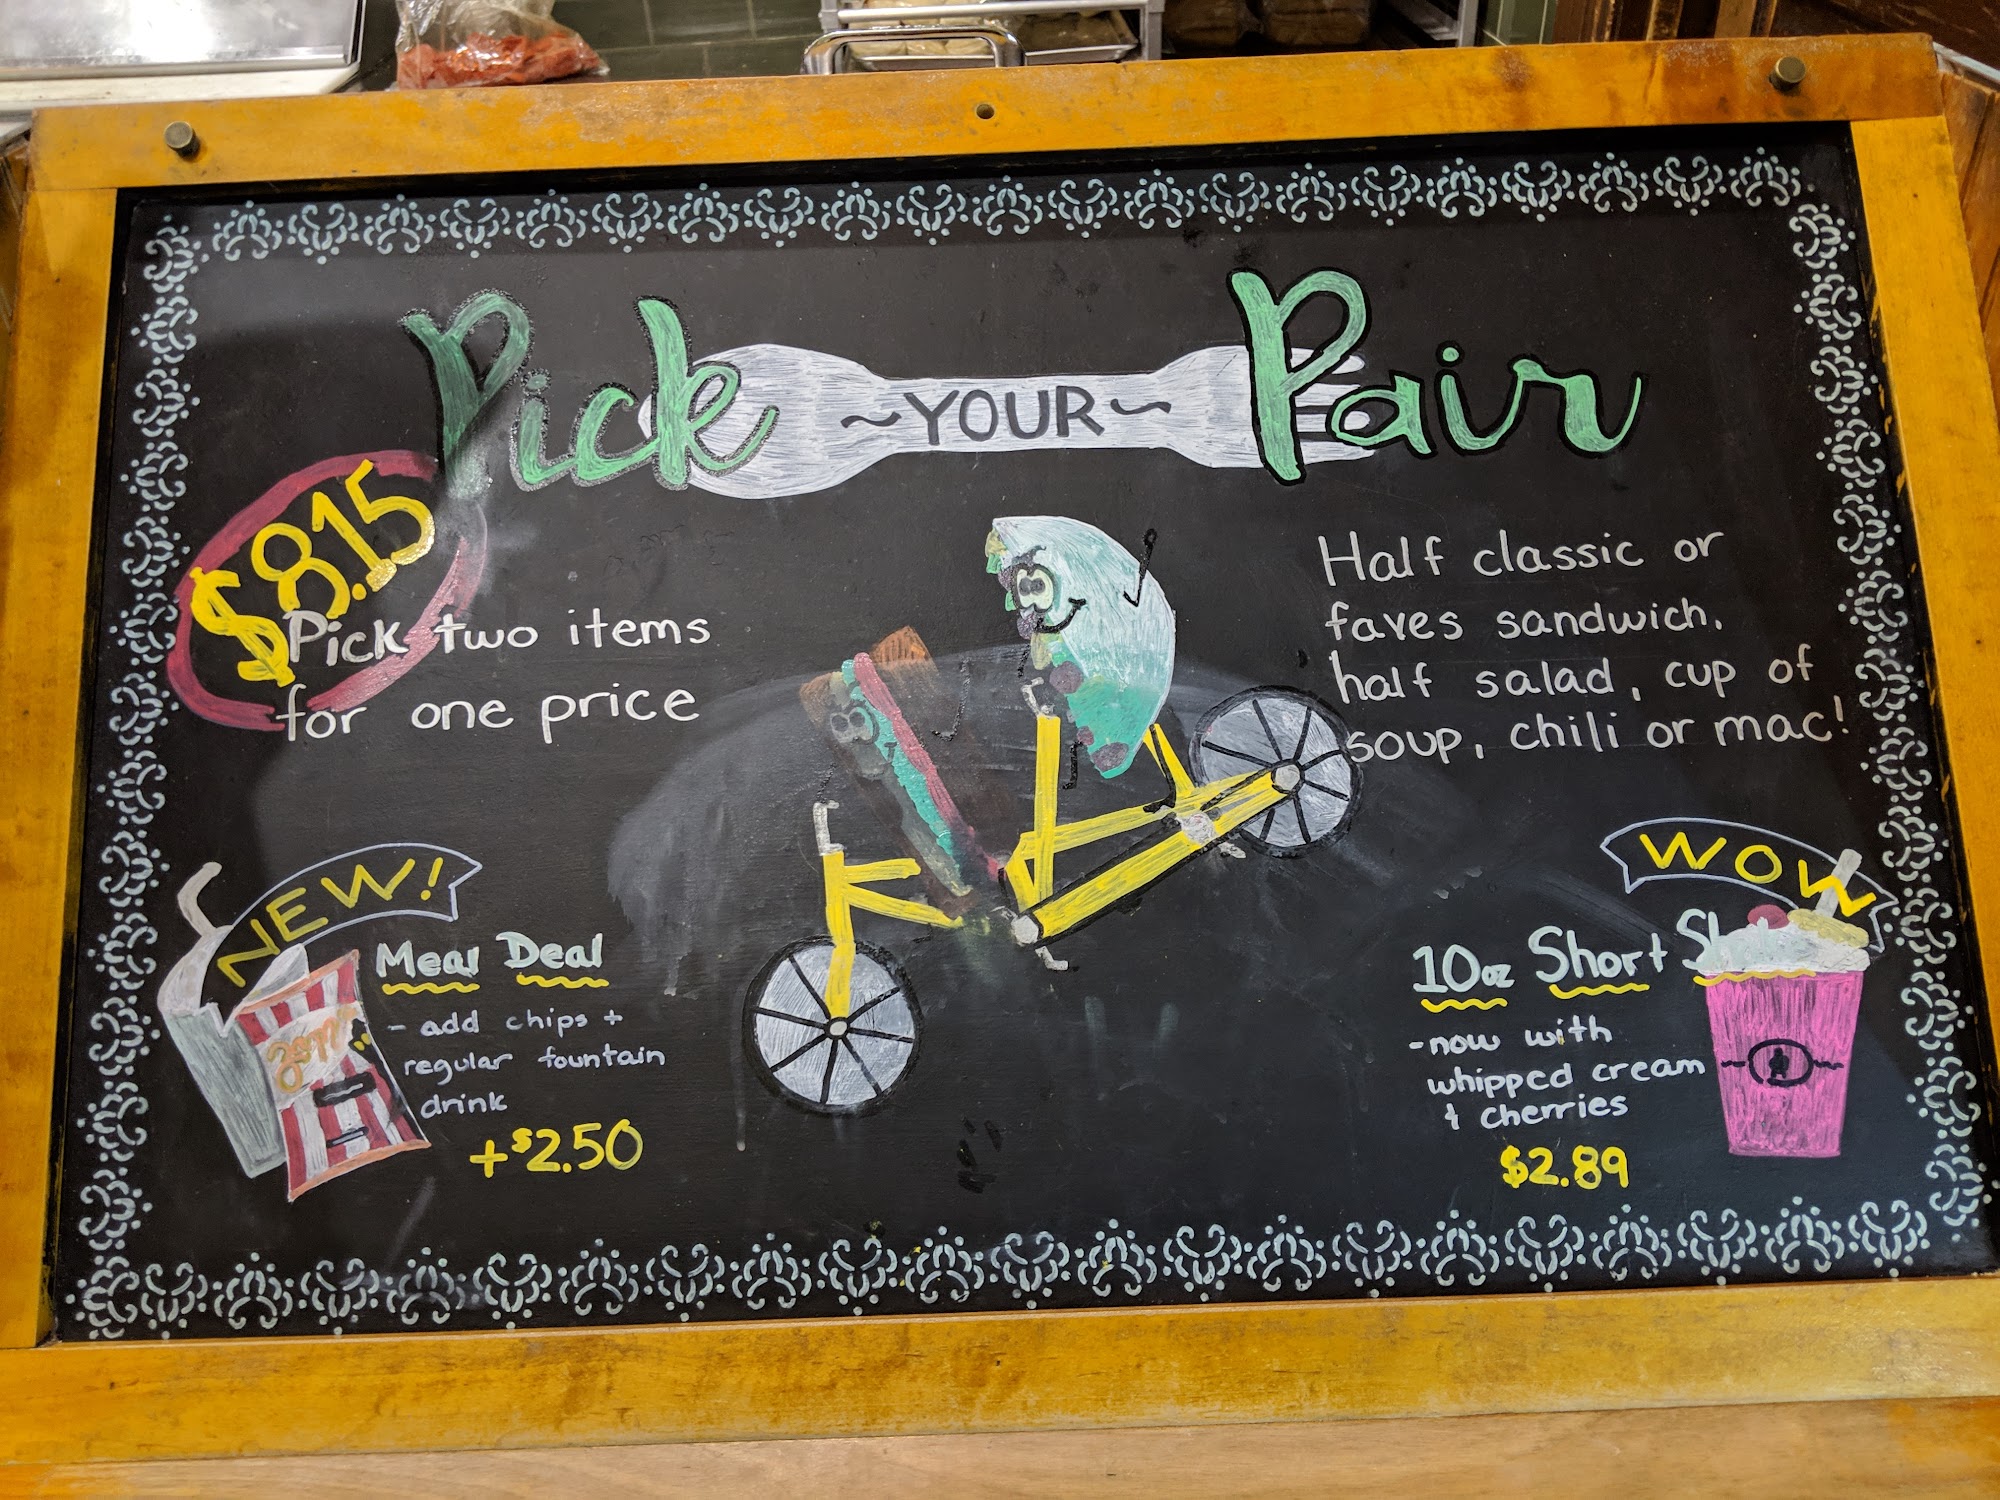 Pick ~YOUR~ Pair
$8.15
Pick two items
for one price
Half classic or
faves sandwich,
half salad, cup of
soup, chili or mac!
NEW!
Meal Deal
- add chips +
regular fountain
drink
+$2.50
WOW
10oz Short
- now with
whipped cream
& cherries
$2.89